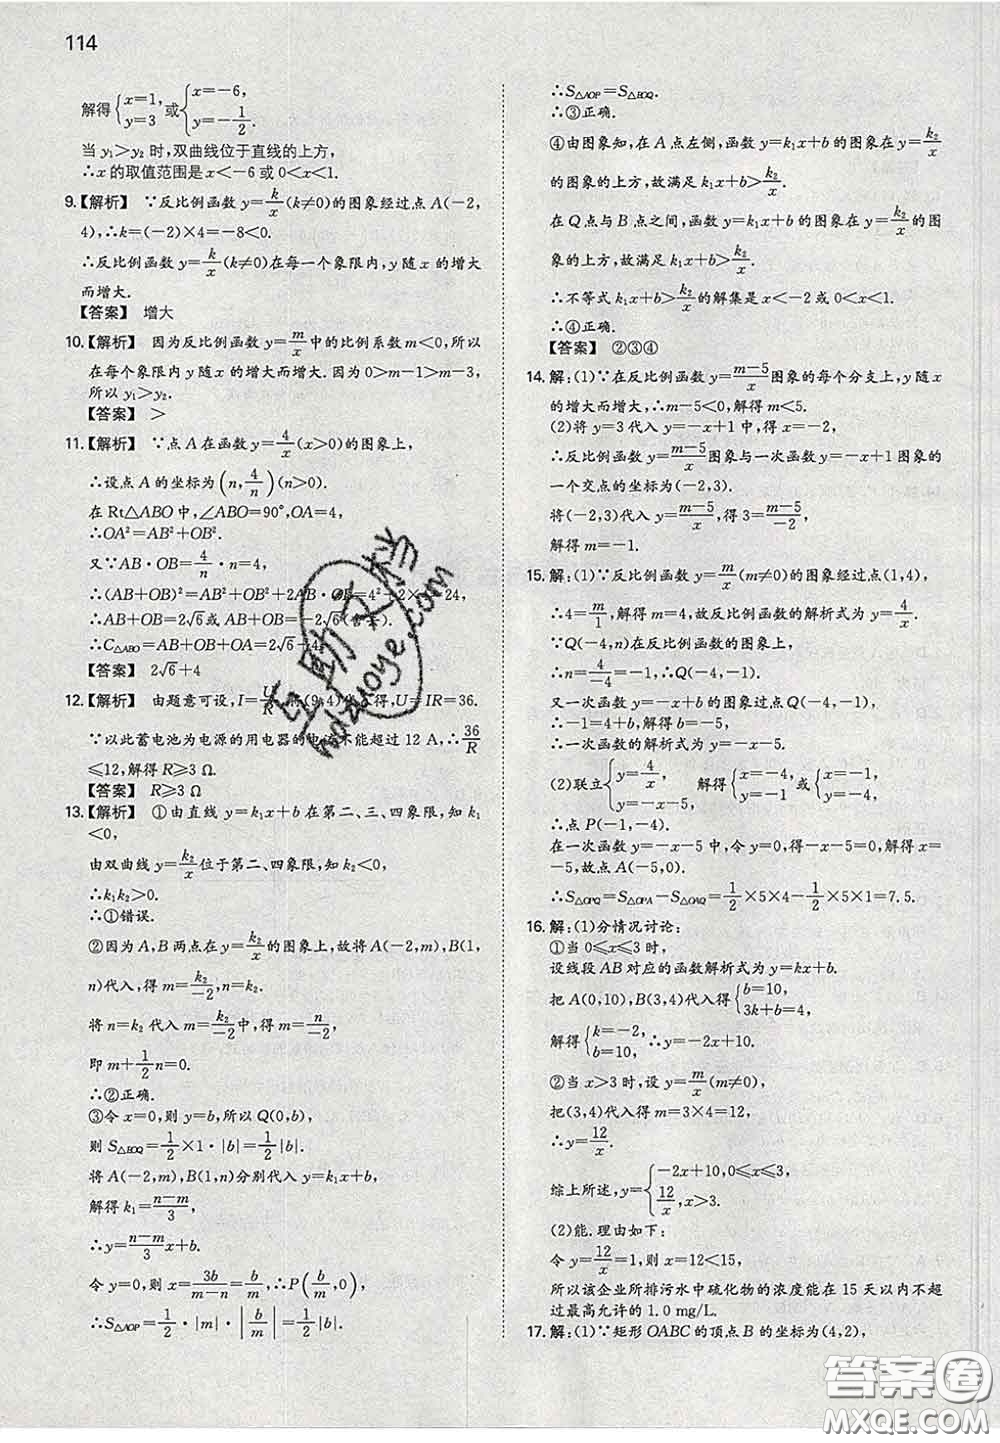 114
解得{x=1, y=3 或{x=-6, y=-1/2.
当 y₁>y₂ 时,双曲线位于直线的上方,
∴x 的取值范围是 x<-6 或 0<x<1.
9.【解析】 ∵反比例函数 y=k/x(k≠0)的图象经过点 A(-2,
4),∴k=(-2)×4=-8<0.
∴反比例函数 y=k/x(k≠0)在每一个象限内,y 随 x 的增大
而增大.
【答案】 增大
10.【解析】 因为反比例函数 y=m/x 中的比例系数 m<0,所以
在每个象限内 y 随 x 的增大而增大.因为 0>m-1>m-3,
所以 y₁>y₂.
【答案】 >
11.【解析】 ∵点 A 在函数 y=4/x(x>0)的图象上,
∴设点 A 的坐标为(n,4/n)(n>0).
在 Rt△ABO 中,∠ABO=90°,OA=4,
∴OA²=AB²+OB².
又∵AB·OB=4/n·n=4,
∴(AB+OB)²=AB²+OB²+2AB·OB=4²+2×4=24,
∴AB+OB=2√6或 AB+OB=-2√6(舍去).
∴C△ABO=AB+OB+OA=2√6+4.
【答案】 2√6+4
12.【解析】 由题意可设,I=U/R,将(9,4)代入得,U=IR=36.
∵以此蓄电池为电源的用电器的电流不能超过 12 A,∴36/R
≤12,解得 R≥3 Ω.
【答案】 R≥3 Ω
13.【解析】 ①由直线 y=k₁x+b 在第二、三、四象限,知 k₁
<0,
由双曲线 y=k₂/x位于第二、四象限,知 k₂<0,
∴k₁k₂>0.
∴①错误.
②因为 A,B 两点在 y=k₂/x的图象上,故将 A(-2,m),B(1,
n)代入,得 m=k₂/-2,n=k₂.
将 n=k₂ 代入 m=k₂/-2中,得 m=n/-2,
即 m+1/2n=0.
∴②正确.
③令 x=0,则 y=b,所以 Q(0,b),
则 S△BOQ=1/2×1·|b|=1/2|b|.
将 A(-2,m),B(1,n)分别代入 y=k₁x+b,
解得 k₁=n-m/3,
∴y=n-m/3x+b.
令 y=0,则 x=3b/m-n=b/m,∴P(b/m,0),
∴S△AOP=1/2·|m|·|b/m|=1/2|b|.
∴S△AOP=S△BOQ.
∴③正确.
④由图象知,在 A 点左侧,函数 y=k₁x+b 的图象在 y=k₂/x
的图象的上方,故满足 k₁x+b>k₂/x.
在 Q 点与 B 点之间,函数 y=k₁x+b 的图象在 y=k₂/x的图
象的上方,故满足 k₁x+b>k₂/x.
∴不等式 k₁x+b>k₂/x的解集是 x<-2 或 0<x<1.
∴④正确.
【答案】 ②③④
14.解:(1)∵在反比例函数 y=m-5/x图象的每个分支上,y 随 x
的增大而增大,∴m-5<0,解得 m<5.
(2)将 y=3 代入 y=-x+1 中,得 x=-2,
∴反比例函数 y=m-5/x图象与一次函数 y=-x+1 图象的
一个交点的坐标为(-2,3).
将(-2,3)代入 y=m-5/x,得 3=m-5/-2,
解得 m=-1.
15.解:(1)∵反比例函数 y=m/x(m≠0)的图象经过点(1,4),
∴4=m/1,解得 m=4,故反比例函数的解析式为 y=4/x.
∵Q(-4,n)在反比例函数的图象上,
∴n=4/-4=-1,∴Q(-4,-1).
又一次函数 y=-x+b 的图象过点 Q(-4,-1),
∴-1=4+b,解得 b=-5.
∴一次函数的解析式为 y=-x-5.
(2)联立{y=4/x, y=-x-5, 解得{x=-4, y=-1 或{x=-1, y=-4.
∴点 P(-1,-4).
在一次函数 y=-x-5 中,令 y=0,得-x-5=0,解得 x=
-5,故点 A(-5,0).
∴S△OPQ=S△OPA-S△OAQ=1/2×5×4-1/2×5×1=7.5.
16.解:(1)分情况讨论:
①当 0≤x≤3 时,
设线段 AB 对应的函数解析式为 y=kx+b.
把 A(0,10),B(3,4)代入得{b=10, 3k+b=4,
解得{k=-2, b=10, ∴y=-2x+10.
②当 x>3 时,设 y=m/x(m≠0),
把(3,4)代入得 m=3×4=12,
∴y=12/x.
综上所述,y={-2x+10,0≤x≤3, 12/x,x>3.
(2)能.理由如下:
令 y=12/x=1,则 x=12<15,
所以该企业所排污水中硫化物的浓度能在 15 天以内不超
过最高允许的 1.0 mg/L.
17.解:(1)∵矩形 OABC 的顶点 B 的坐标为(4,2),
答案圈
MXQE.COM